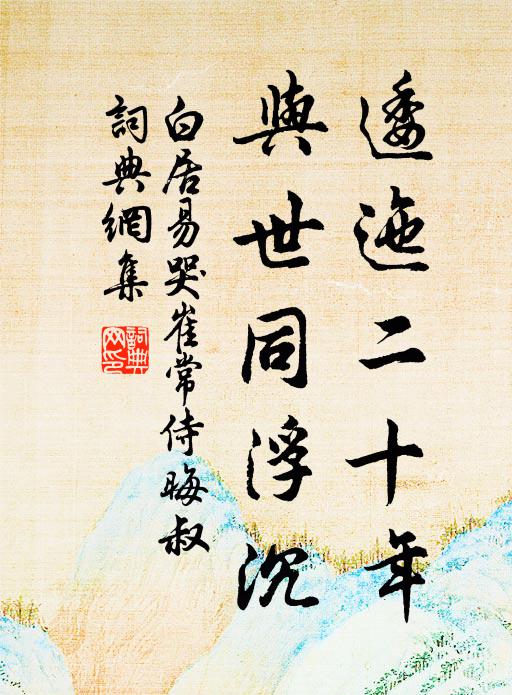 逶迤二十年
與世同浮沉
白居易哭崔常侍晦叔
詞典網集
詞典網印